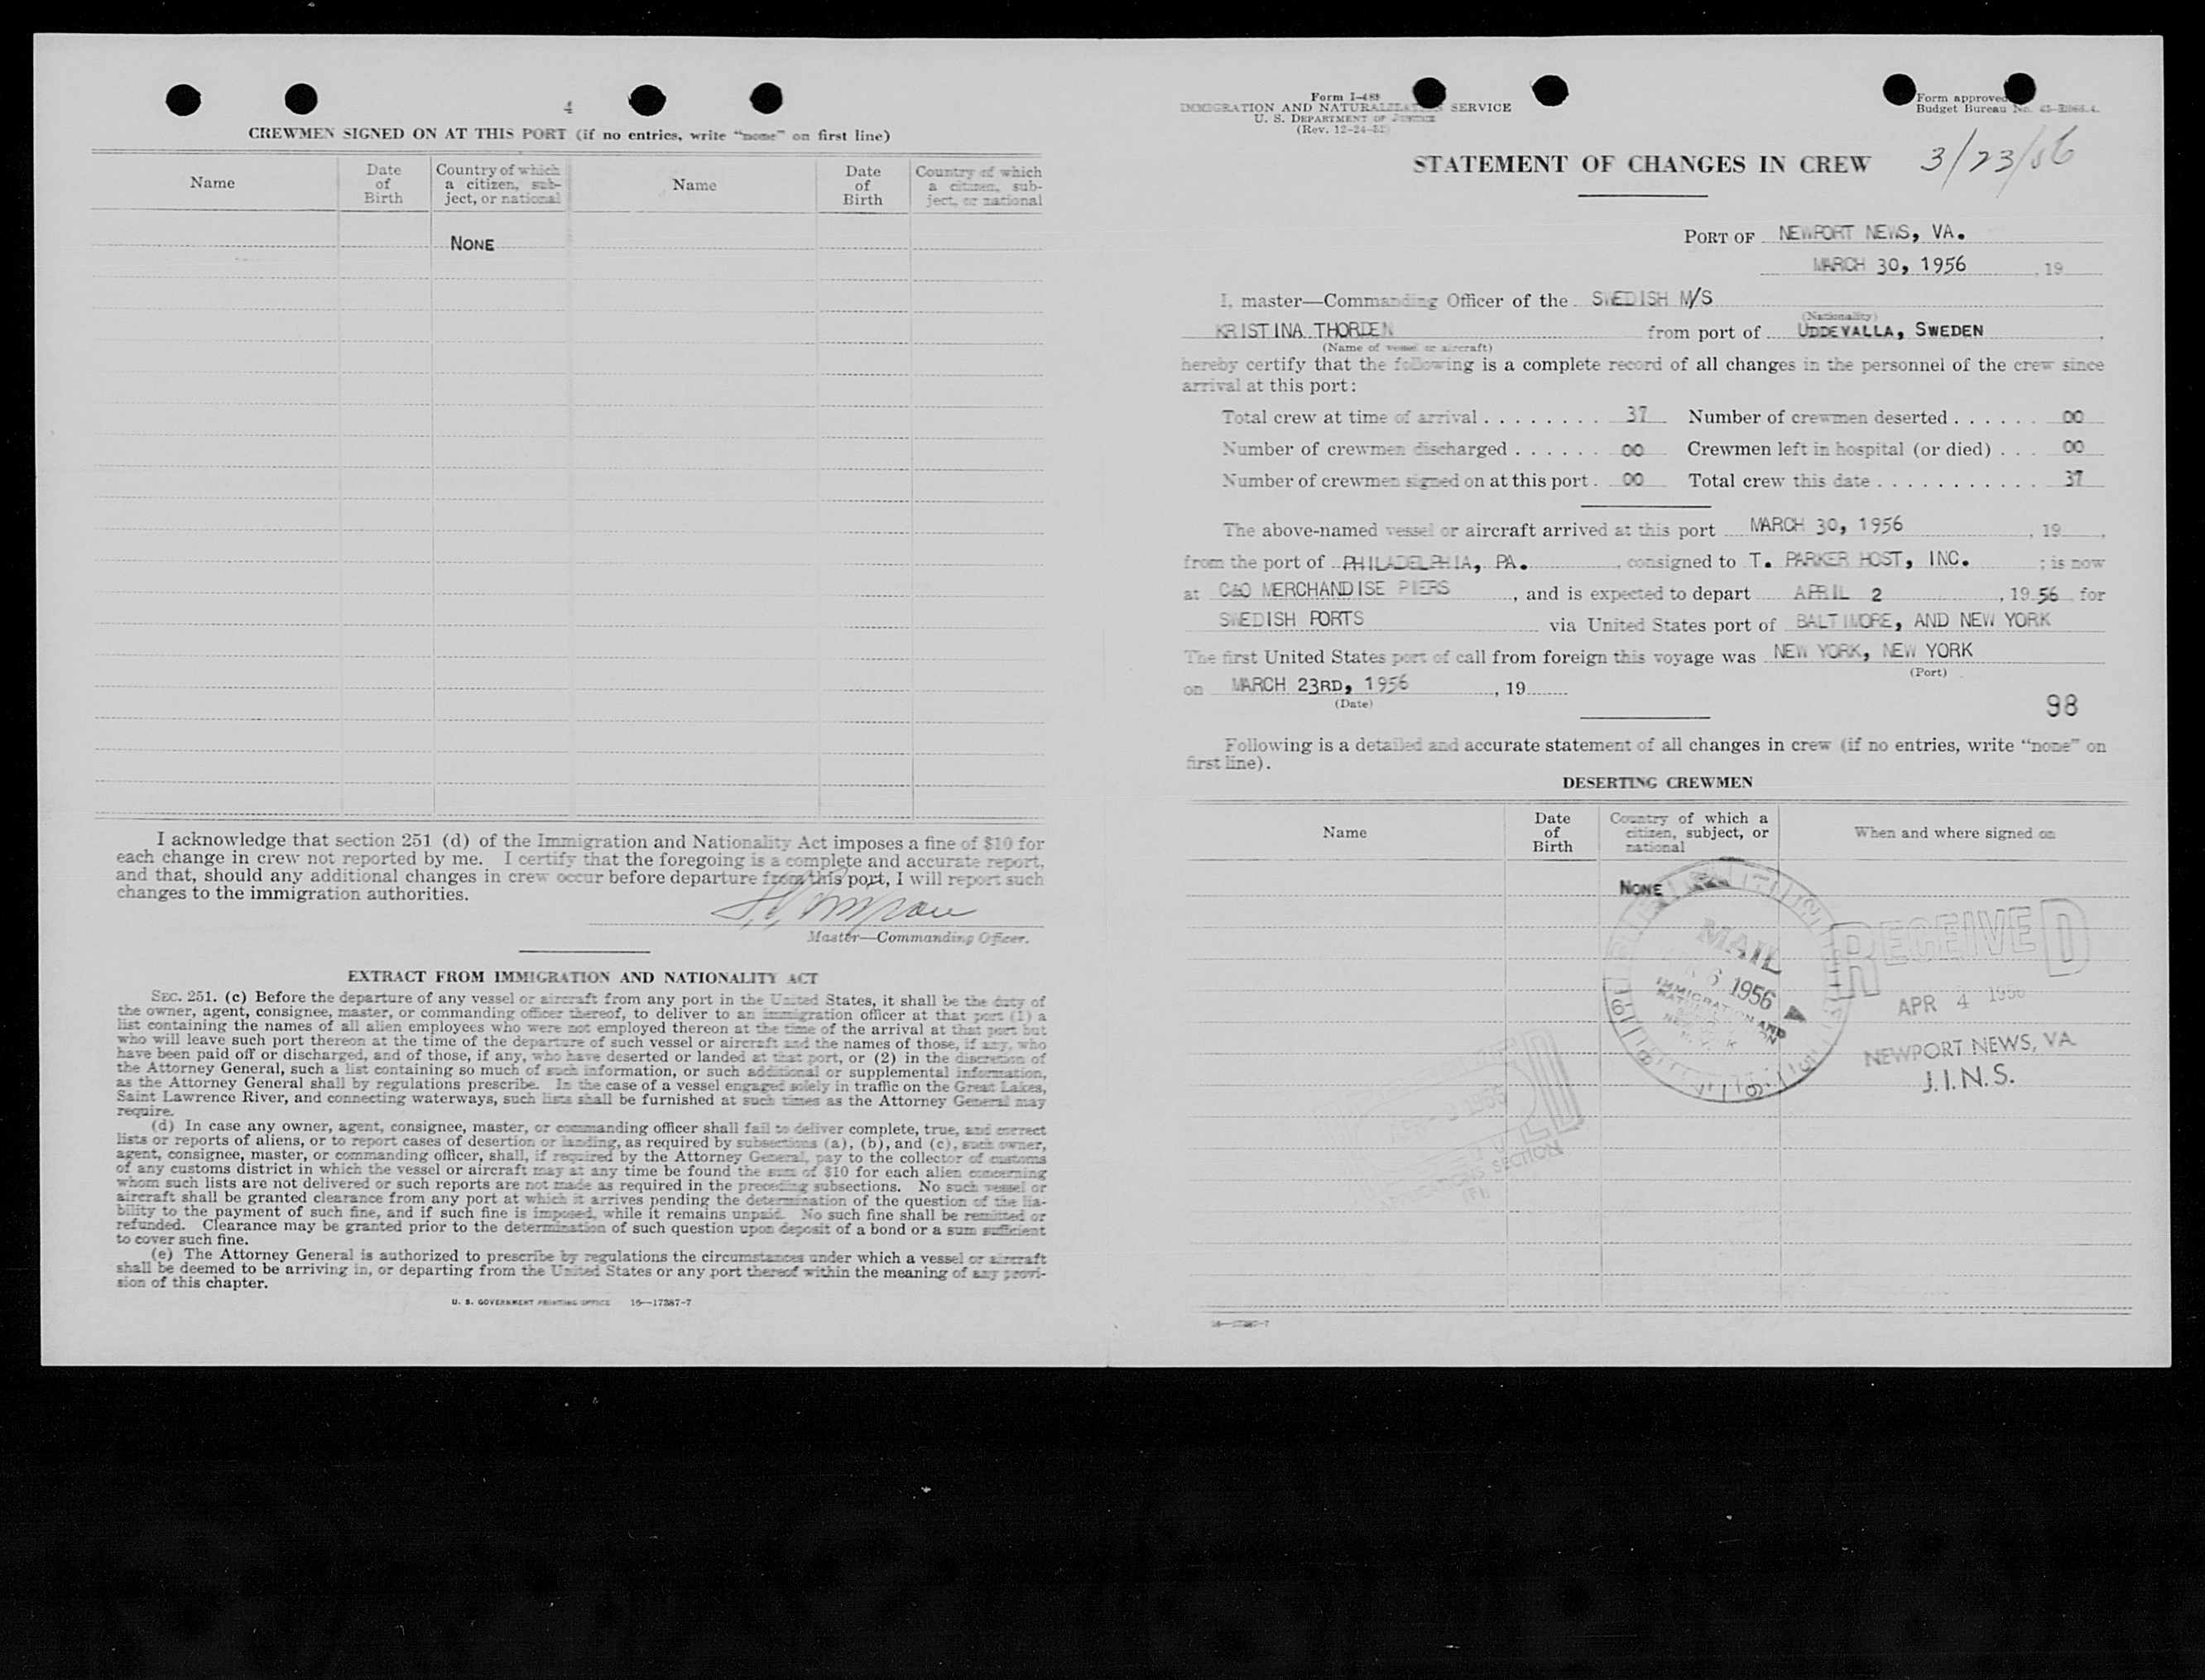 4
CREWMEN SIGNED ON AT THIS PORT (if no entries, write “none” on first line)
Name
Date of Birth
Country of which a citizen, sub-ject, or national
Name
Date of Birth
Country of which a citizen, sub-ject, or national
NONE
I acknowledge that section 251 (d) of the Immigration and Nationality Act imposes a fine of $10 for
each change in crew not reported by me. I certify that the foregoing is a complete and accurate report,
and that, should any additional changes in crew occur before departure from this port, I will report such
changes to the immigration authorities.
Master—Commanding Officer.
EXTRACT FROM IMMIGRATION AND NATIONALITY ACT
SEC. 251. (c) Before the departure of any vessel or aircraft from any port in the United States, it shall be the duty of
the owner, agent, consignee, master, or commanding officer thereof, to deliver to an immigration officer at that port (1) a
list containing the names of all alien employees who were not employed thereon at the time of the arrival at that port but
who will leave such port thereon at the time of the departure of such vessel or aircraft and the names of those, if any, who
have been paid off or discharged, and of those, if any, who have deserted or landed at that port, or (2) in the discretion of
the Attorney General, such a list containing so much of such information, or such additional or supplemental information,
as the Attorney General shall by regulations prescribe. In the case of a vessel engaged solely in traffic on the Great Lakes,
Saint Lawrence River, and connecting waterways, such lists shall be furnished at such times as the Attorney General may
require.
(d) In case any owner, agent, consignee, master, or commanding officer shall fail to deliver complete, true, and correct
lists or reports of aliens, or to report cases of desertion or landing, as required by subsections (a), (b), and (c), such owner,
agent, consignee, master, or commanding officer, shall, if required by the Attorney General, pay to the collector of customs
of any customs district in which the vessel or aircraft may at any time be found the sum of $10 for each alien concerning
whom such lists are not delivered or such reports are not made as required in the preceding subsections. No such vessel or
aircraft shall be granted clearance from any port at which it arrives pending the determination of the question of the lia-
bility to the payment of such fine, and if such fine is imposed, while it remains unpaid. No such fine shall be remitted or
refunded. Clearance may be granted prior to the determination of such question upon deposit of a bond or a sum sufficient
to cover such fine.
(e) The Attorney General is authorized to prescribe by regulations the circumstances under which a vessel or aircraft
shall be deemed to be arriving in, or departing from the United States or any port thereof within the meaning of any provi-
sion of this chapter.
U. S. GOVERNMENT PRINTING OFFICE 16—17387-7
Form I-489
IMMIGRATION AND NATURALIZATION SERVICE
U. S. DEPARTMENT OF JUSTICE
(Rev. 12-24-52)
Form approved
Budget Bureau No.
STATEMENT OF CHANGES IN CREW 3/23/56
PORT OF NEWPORT NEWS, VA.
MARCH 30, 1956, 19
I, master—Commanding Officer of the SWEDISH M/S
(Nationality)
KRISTINA THORDEN from port of UDDEVALLA, SWEDEN,
(Name of vessel or aircraft)
hereby certify that the following is a complete record of all changes in the personnel of the crew since
arrival at this port:
Total crew at time of arrival . . . . . . . . 37 Number of crewmen deserted . . . . . . 00
Number of crewmen discharged . . . . . . 00 Crewmen left in hospital (or died) . . . 00
Number of crewmen signed on at this port . 00 Total crew this date . . . . . . . . . . . 37
The above-named vessel or aircraft arrived at this port MARCH 30, 1956, 19,
from the port of PHILADELPHIA, PA., consigned to T. PARKER HOST, INC. ; is now
at C&O MERCHANDISE PIERS, and is expected to depart APRIL 2, 1956 for
SWEDISH PORTS via United States port of BALTIMORE, AND NEW YORK
The first United States port of call from foreign this voyage was NEW YORK, NEW YORK
(Port)
on MARCH 23RD, 1956, 19
(Date)
98
Following is a detailed and accurate statement of all changes in crew (if no entries, write “none” on
first line).
DESERTING CREWMEN
Name
Date of Birth
Country of which a citizen, subject, or national
When and where signed on
NONE
MAIL
6 1956
IMMIGRATION AND
RECEIVED
APR 4 1956
NEWPORT NEWS, VA
J.I.N.S.
SECTION
16—17387-7